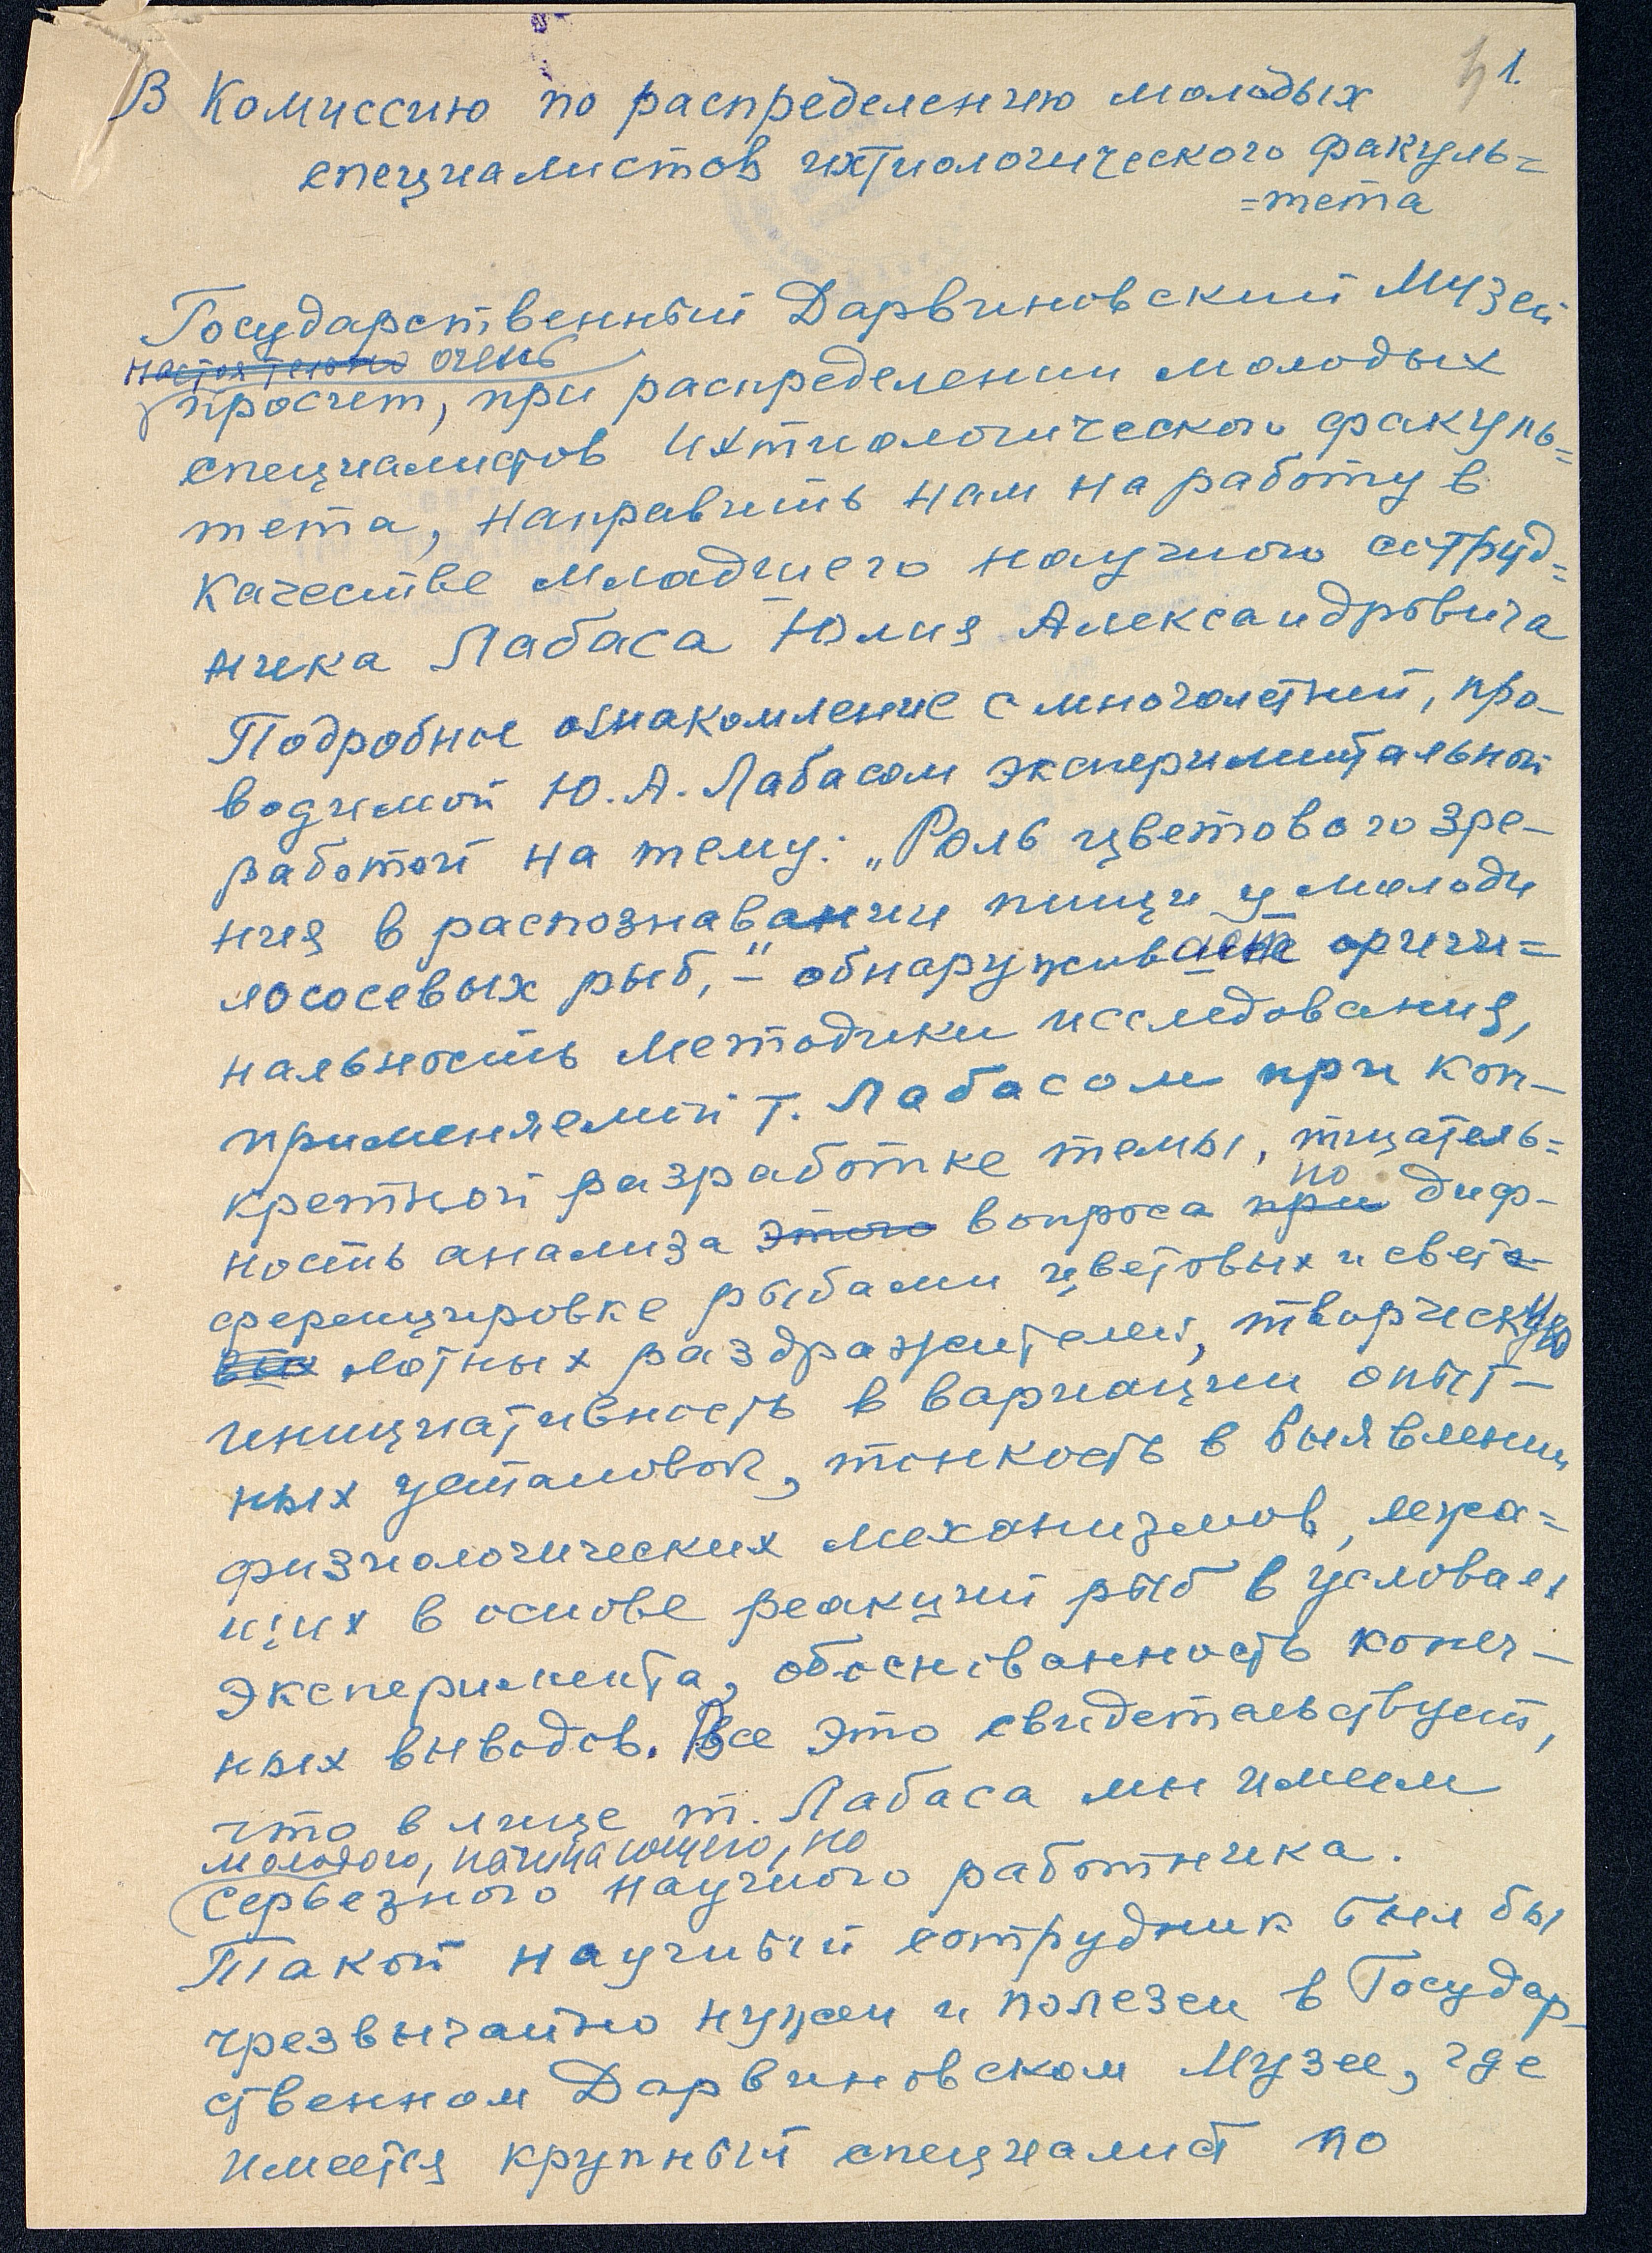 1.
В Комиссию по распределению молодых
специалистов ихтиологического факуль=
=тета
Государственный Дарвиновский Музей
настоятельно очень
просит, при распределении молодых
специалистов Ихтиологического факуль=
тета, направить нам на работу в
качестве младшего научного сотруд=
ника Лабаса Юлия Александровича
Подробное ознакомление с многолетней, про-
водимой Ю. А. Лабасом экспериментальной
работой на тему: „Роль цветового зре-
ния в распознавании пищи у молоди
лососевых рыб," – обнаруживает ориги=
нальность методики исследования,
применяемой т. Лабасом при кон-
кретной разработке темы, тщатель=
по
ность анализа этого вопроса при диф-
ференцировке рыбами цветовых и свет-
вых лотных раздражителей, творческую
инициативность в вариации опыт-
ных установок, тонкость в выявлении
физиологических механизмов, лежа=
щих в основе реакций рыб в условиях
эксперимента, обоснованность конеч-
ных выводов. Все это свидетельствует,
что в лице т. Лабаса мы имеем
молодого, начинающего, но
серьезного научного работника.
Такой научный сотрудник был бы
чрезвычайно нужен и полезен в Государ-
ственном Дарвиновском Музее, где
имеется крупный специалист по